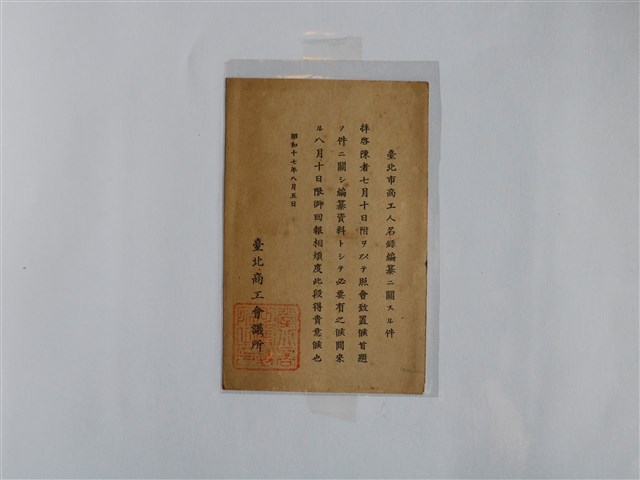 臺北市商工人名錄編纂ニ關スル件
拜啓陳者七月十日附ヲ以テ照會致置候首題
ノ件ニ關シ編纂資料トシテ必要有之候間來
ル八月十日限御回報相煩度此段得貴意候也
昭和十七年八月五日
臺北商工會議所